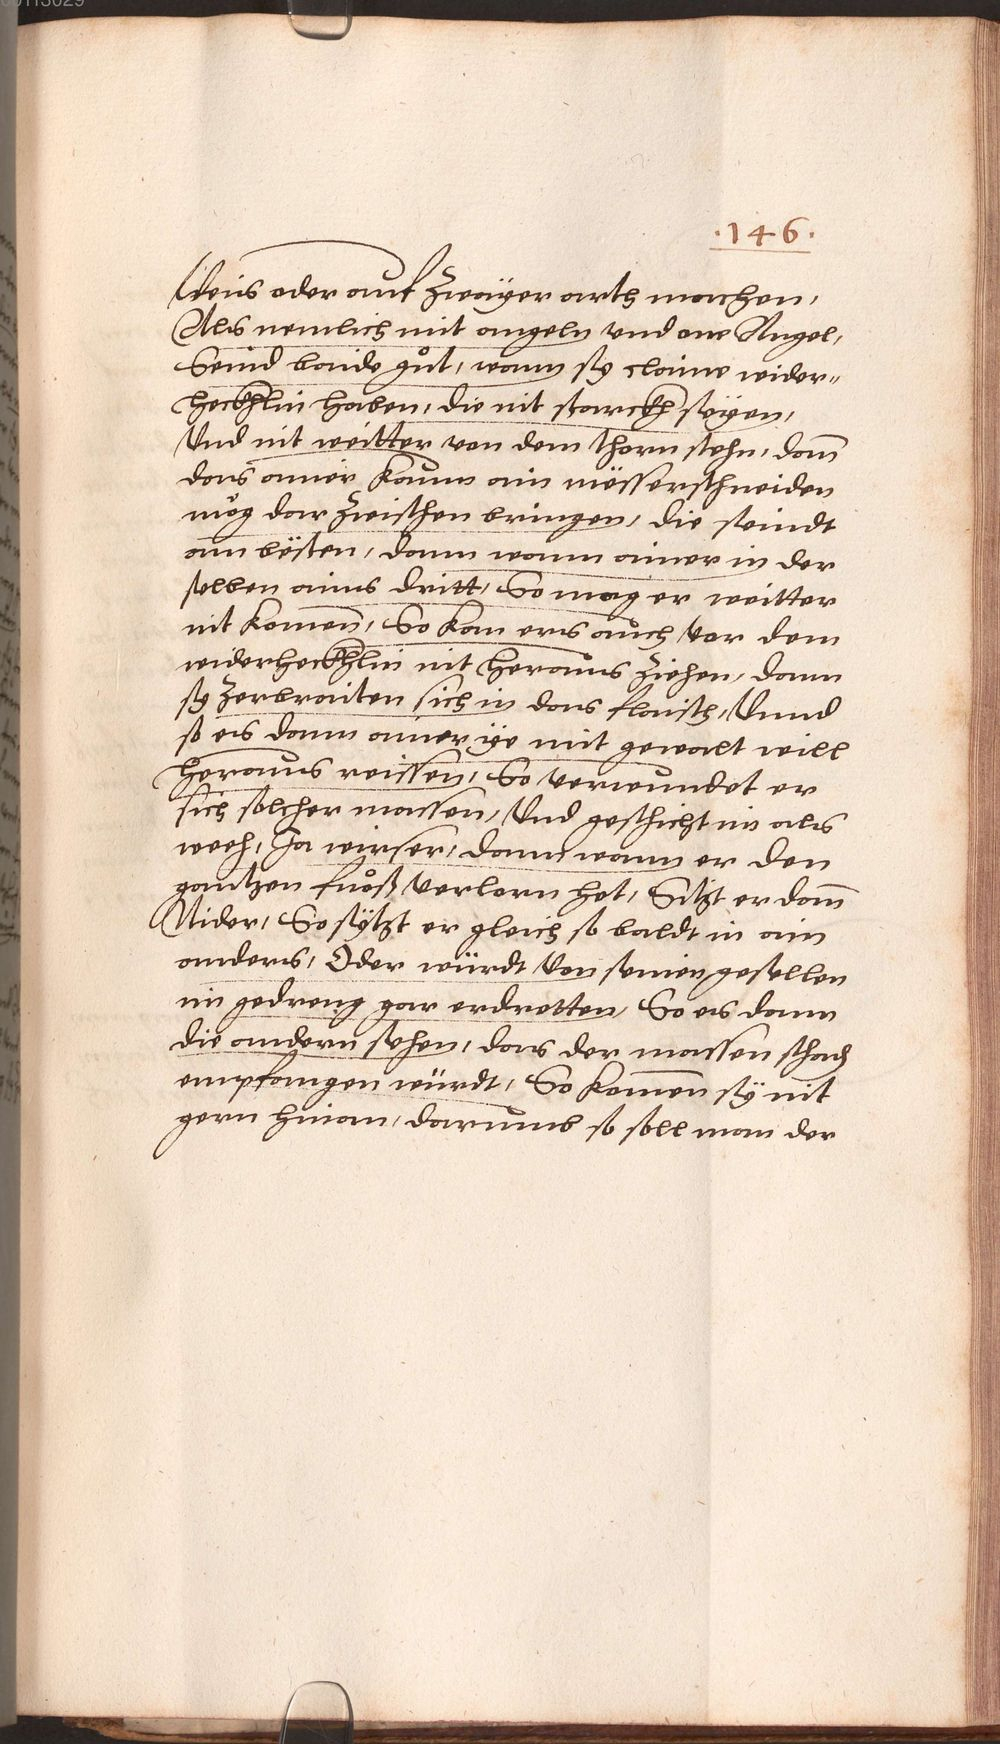 ·146·
Weis oder auf Zwayer arth machen,
Als nemlich mit angeln vnd one Angel,
Seind baide gůt, wann sy claine wider-
heckhlin haben, die nit starckh seyen,
Vnd nit weitter von dem thorn stehn, dan̄
das ainer kaum ain messerschneiden
mög dar Zwischen bringen, die seindt
am bësten, dann wann ainer in der
selben ains dritt, So mag er weitter
nit komen̄, So kan ers auch vor dem
widerheckhlin nit heraus ziehen, dann
sy Zerbraiten sich in das flaisch, Vnnd
so es dann ainer ye mit gewalt will
heraus reissen, So verwundet er
sich solcher massen, Vnd geschicht im als
weeh, Ja wirser, dann wann er den
gantzen fuoß verlorn het, Sitzt er dan̄
Nider, So sytzt er gleich so baldt in ain
anders, Oder würdt von seinen gesellen
im gedreng gar erdretten, So es dann
die andern sehen, das der massen schad
empfangen würdt, So komen̄ sy nit
gern hinan, darumb so soll man der